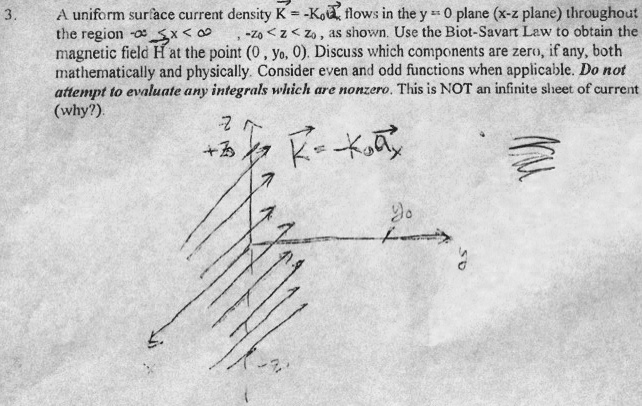 3. A uniform surface current density K⃗ = -K₀a⃗ₓ flows in the y = 0 plane (x-z plane) throughout
the region -∞ ≤ x < ∞ , -z₀ < z < z₀ , as shown. Use the Biot-Savart Law to obtain the
magnetic field H⃗ at the point (0 , y₀, 0). Discuss which components are zero, if any, both
mathematically and physically. Consider even and odd functions when applicable. Do not
attempt to evaluate any integrals which are nonzero. This is NOT an infinite sheet of current
(why?).
z
+z₀ K⃗ = -K₀a⃗ₓ
y₀
y
-z₀